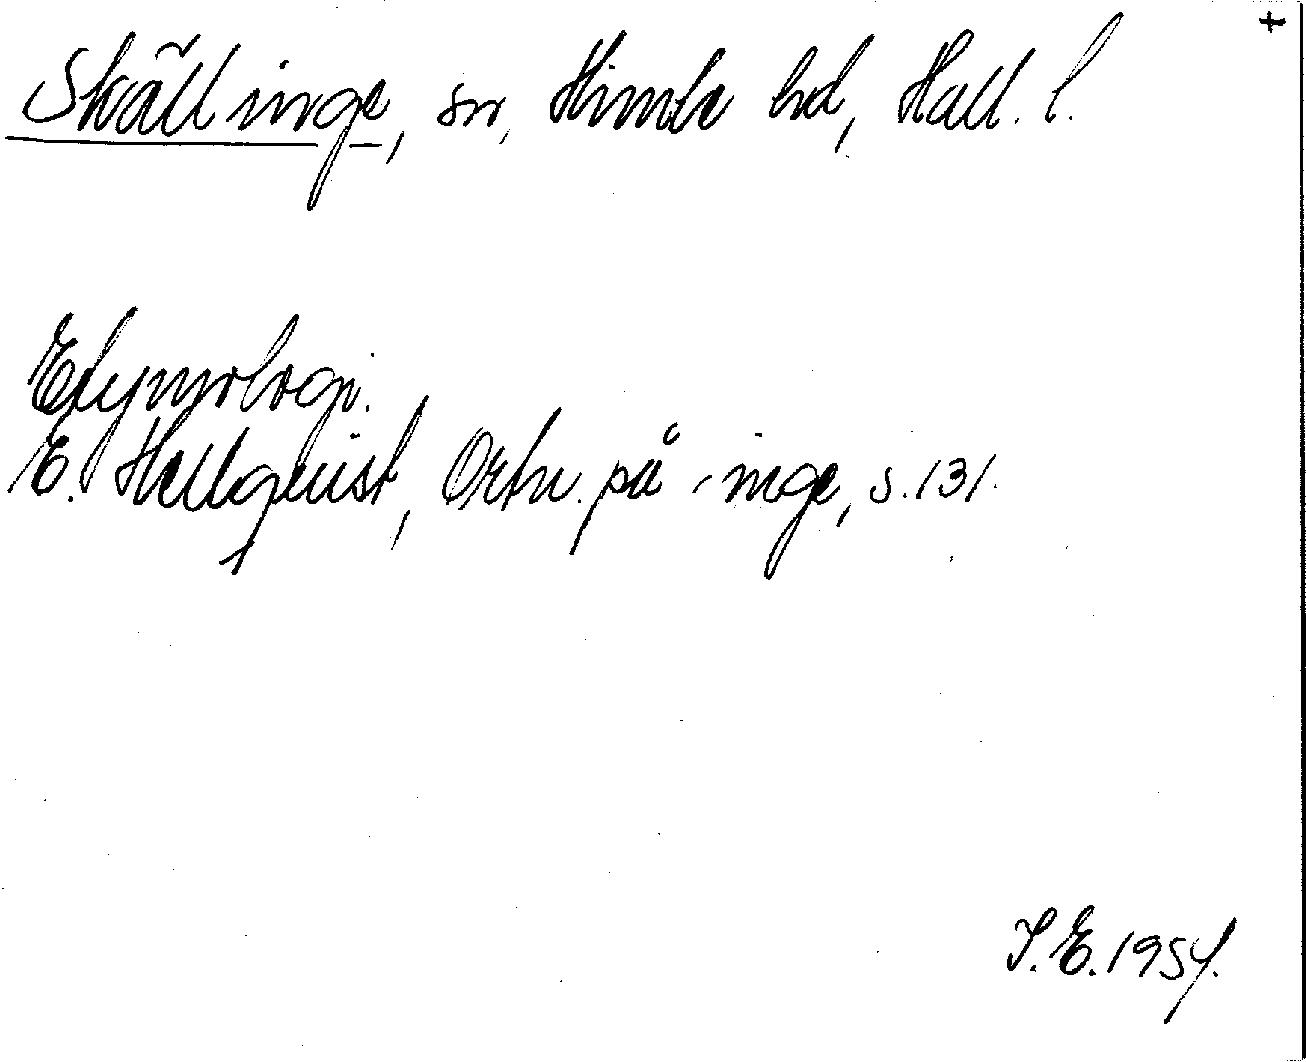 +
Skällinge, sn, Himle hd, Hall. l.
Etymologi.
E. Hellquist, Ortn. på -inge, s. 131.
S.E. 1954.